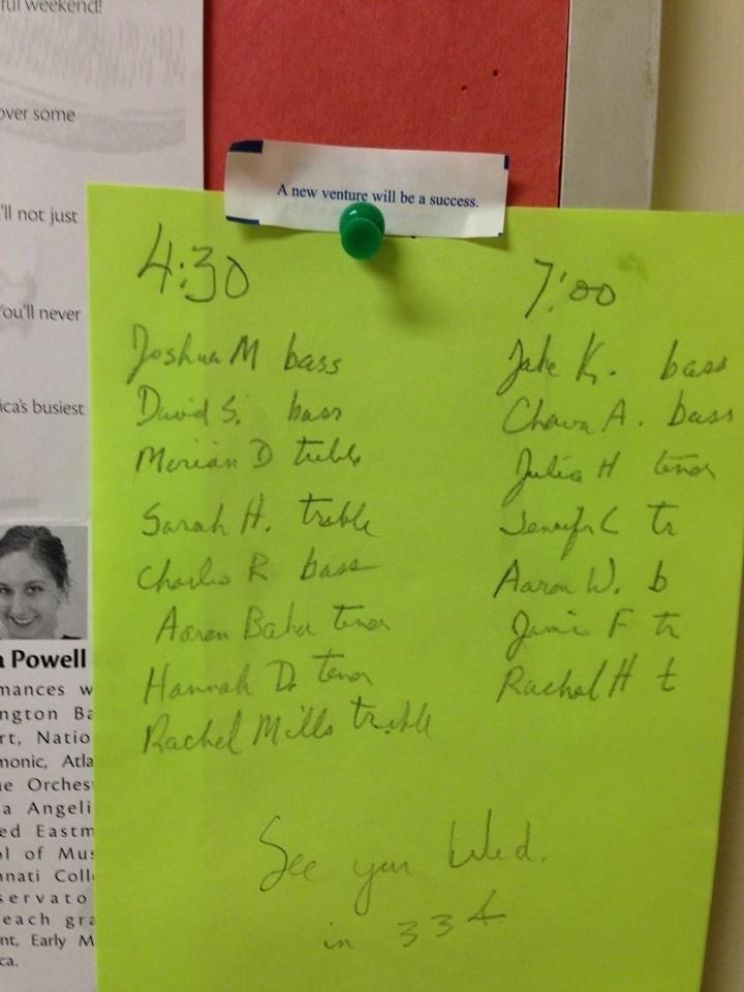 ful weekend!
over some
'll not just
You'll never
ica's busiest
A new venture will be a success.
4:30
Joshua M bass
David S. bass
Merian D treble
Sarah H. treble
Charlie R bass
Aaron Baker tenor
Hannah D. tenor
Rachel Mills treble
7:00
Jake K. bass
Chava A. bass
Julia H tenor
Jennifr C tr
Aaron W. b
Jamie F tr
Rachel H t
See you Wed.
in 334
a Powell
mances w
ngton Ba
rt, Natio
monic, Atla
ue Orches
a Angeli
ed Eastm
ol of Mus
nnati Coll
servato
each gra
nt, Early M
ca.